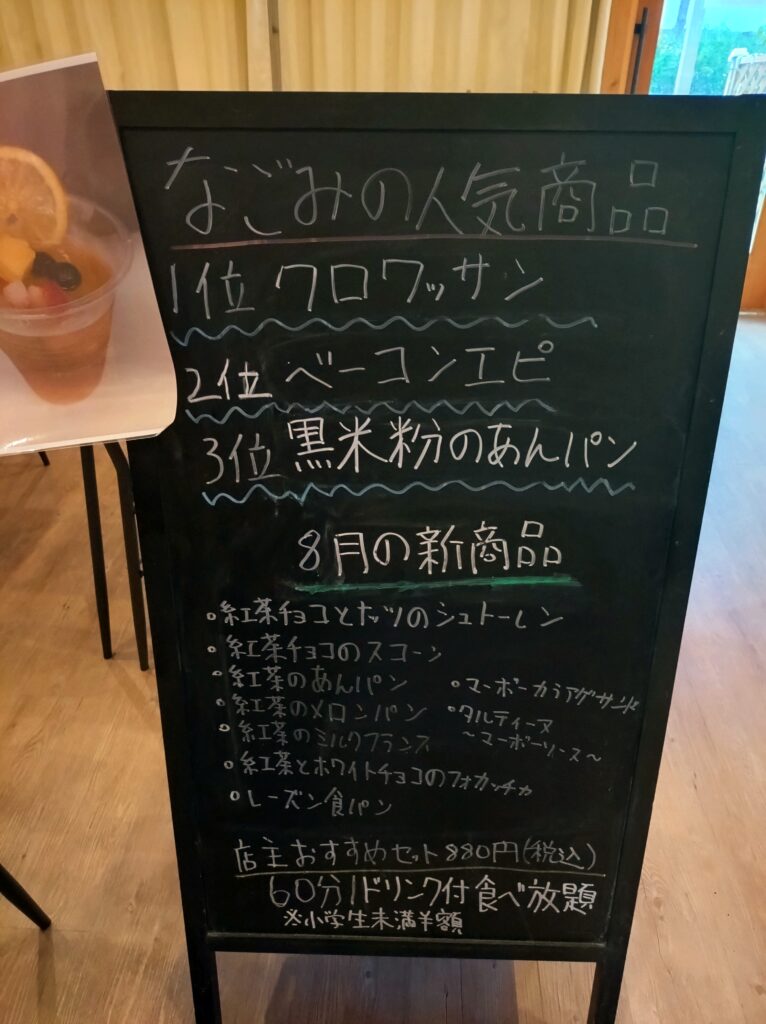 なごみの人気商品
1位 クロワッサン
2位 ベーコンエピ
3位 黒米粉のあんパン
8月の新商品
○紅茶チョコとナッツのシュトーレン
○紅茶チョコのスコーン
○紅茶のあんパン
○紅茶のメロンパン
○紅茶のミルクフランス
○紅茶とホワイトチョコのフォカッチャ
○レーズン食パン
○マーボーカラアゲサンド
○タルティーヌ
～マーボーソース～
店主おすすめセット880円(税込)
60分1ドリンク付食べ放題
※小学生未満半額